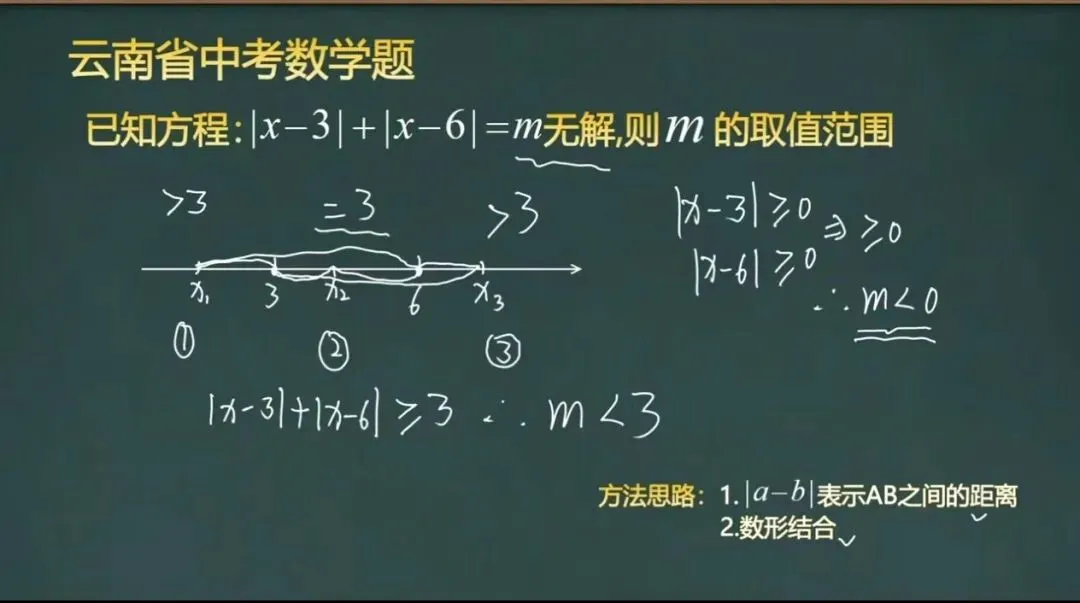 云南省中考数学题
已知方程:|x-3|+|x-6|=m无解,则m的取值范围
>3 =3 >3
x₁ 3 x₂ 6 x₃
① ② ③
|x-3|≥0
|x-6|≥0
⇒ ≥0
∴ m<0
|x-3|+|x-6|≥3 ∴ m<3
方法思路: 1.|a-b|表示AB之间的距离
2.数形结合